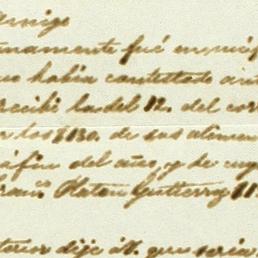 amigo
namente fué enmi
que habia contestado
recibi la del 12. del cor
los $130. de sus
á fin del año, y de cuy
Platon Gutierrez
dije á V. que seria